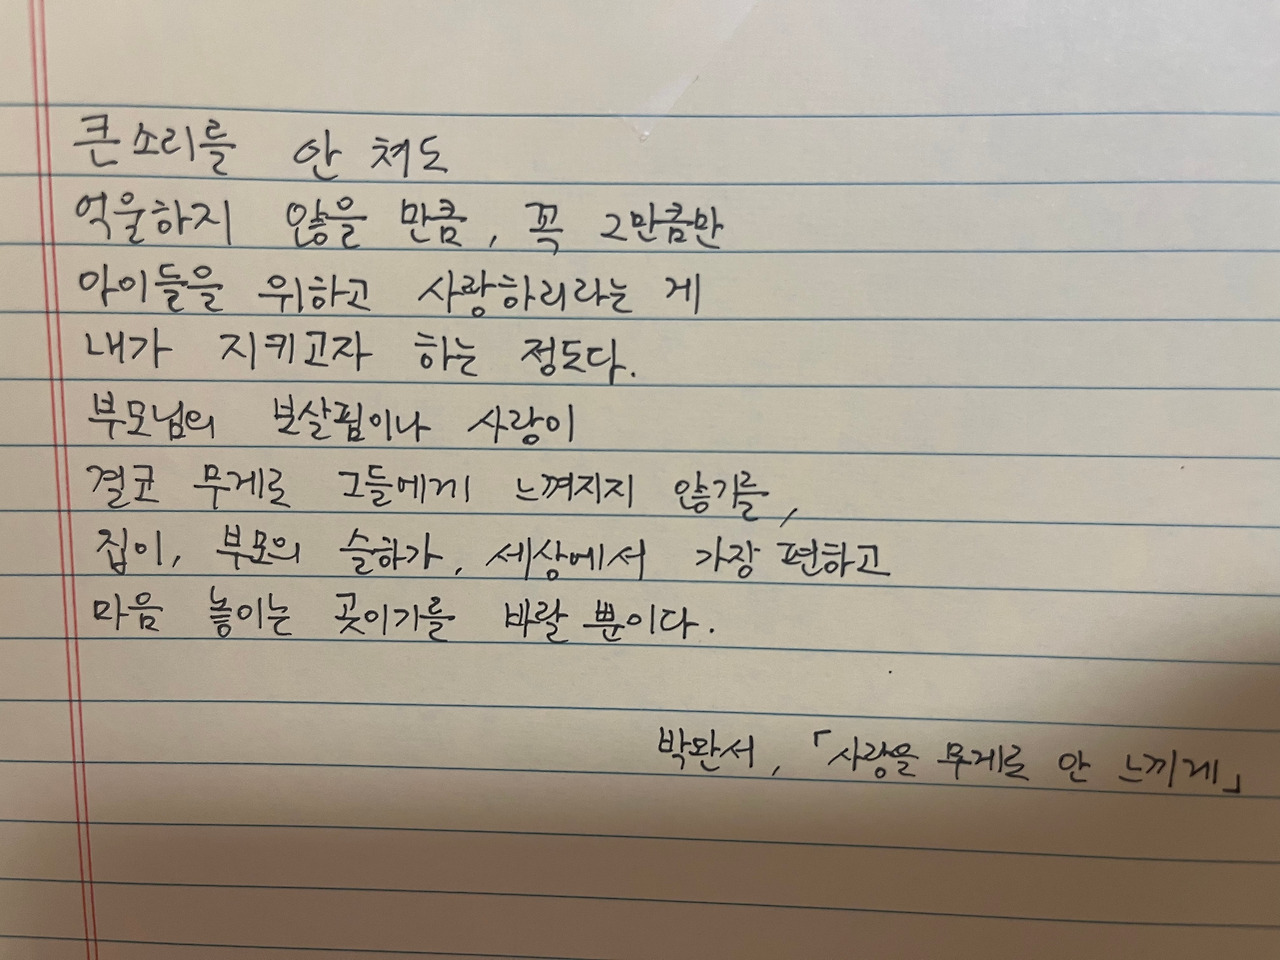 큰소리를 안 쳐도
억울하지 않을 만큼, 꼭 그만큼만
아이들을 위하고 사랑하리라는 게
내가 지키고자 하는 정도다.
부모님의 보살핌이나 사랑이
결코 무게로 그들에게 느껴지지 않기를,
집이, 부모의 슬하가, 세상에서 가장 편하고
마음 놓이는 곳이기를 바랄 뿐이다.
박완서, 「사랑을 무게로 안 느끼게」